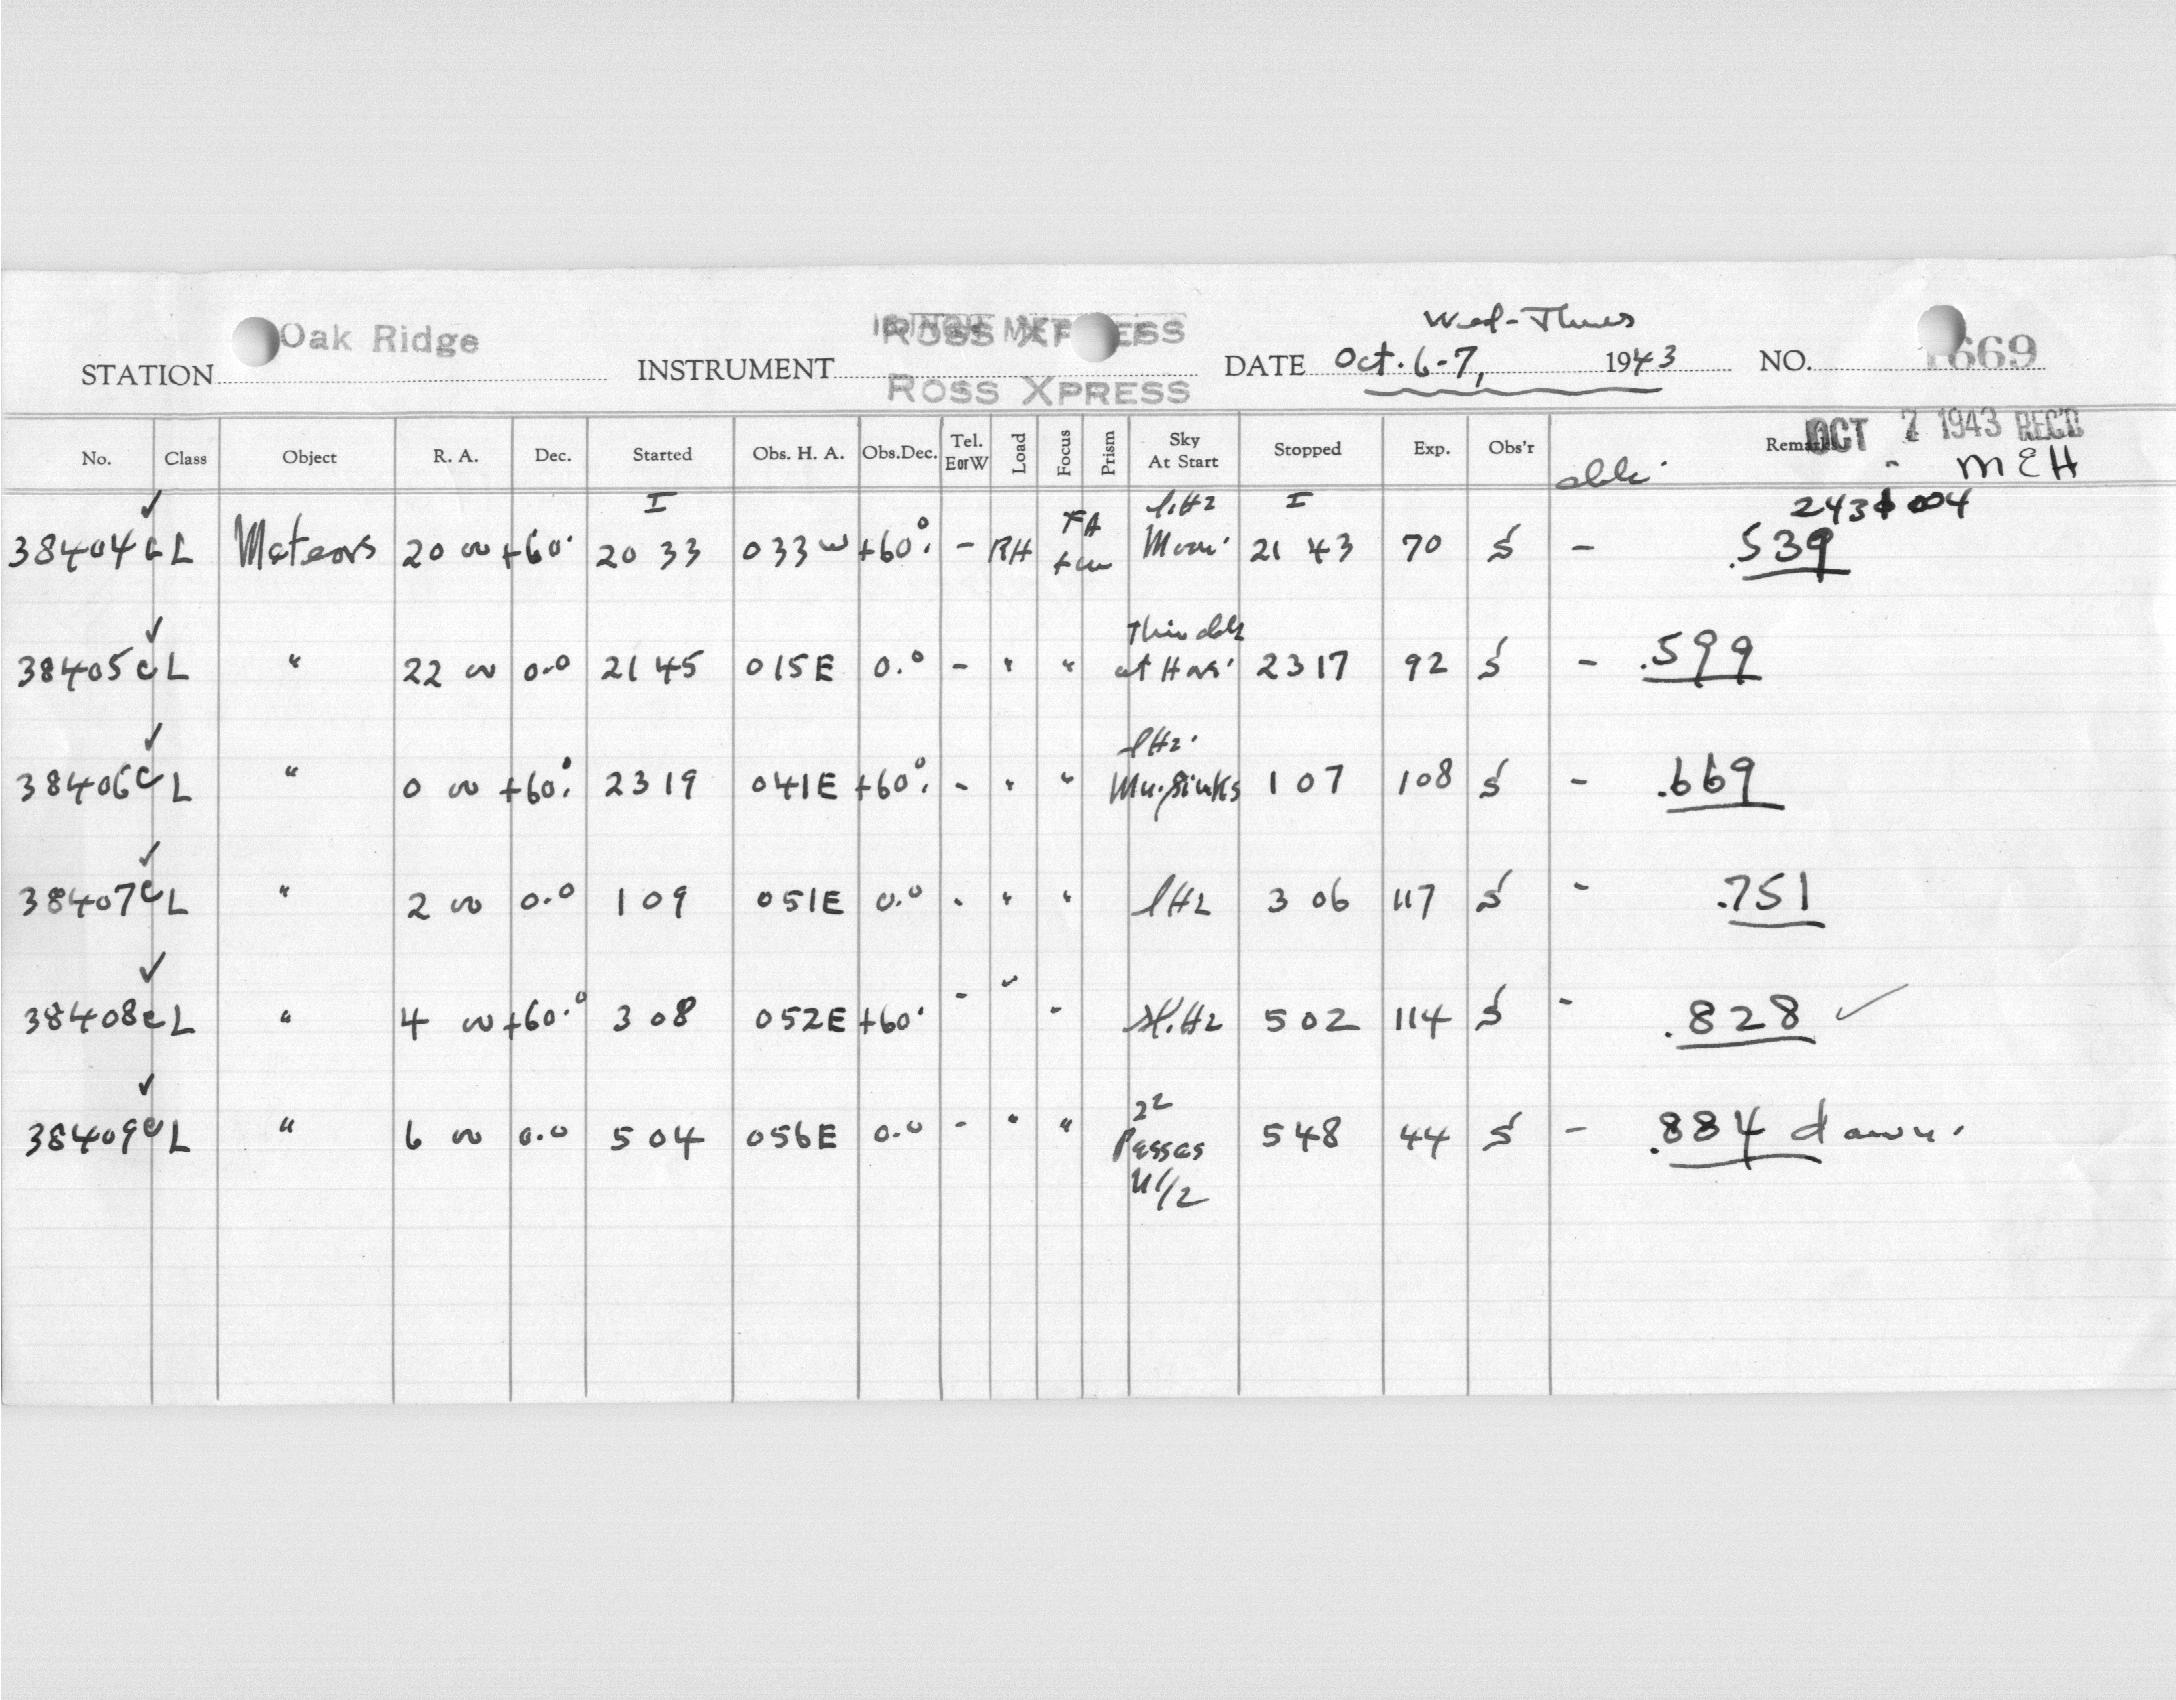 Wed-Thurs
STATION Oak Ridge INSTRUMENT ROSS XPRESS DATE Oct. 6-7, 1943 NO. 1669
ROSS XPRESS
No. Class Object R. A. Dec. Started Obs. H. A. Obs.Dec. Tel. EorW Load Focus Prism Sky At Start Stopped Exp. Obs'r Remarks OCT 7 1943 REC'D
MEH
38404 c L Meteors 20 00 +60° 20 33 033W +60° - RH FA Moon 21 43 70 S - .539
38405 c L " 22 00 0.0 21 45 015E 0.0 - " " Thin at 23 17 92 S - .599
38406 c L " 0 00 +60° 23 19 041E +60° - " " lHz Mn. Sinks 1 07 108 S - .669
38407 c L " 2 00 0.0 1 09 051E 0.0 - " " lHz 3 06 117 S - .751
38408 c L " 4 00 +60° 3 08 052E +60° - " " Hz 5 02 114 S - .828 ✓
38409 c L " 6 00 0.0 5 04 056E 0.0 - " " Passes 5 48 44 S - .884 dawn.